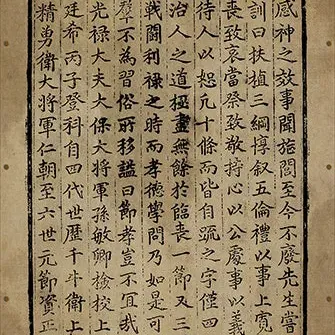 感神之效事聞旌閭至今不廢先生嘗
訓曰扶植三綱惇叙五倫禮以事上寬
喪致哀當祭致敬持心以公處事以義
待人以恕凡十條而皆自疏之字僅四
治人之道極盡無餘於臨喪一節又三
戰鬪利祿之時而孝德學問乃如是可
羣不為習俗所移諡曰節孝豈不宜哉
光祿大夫大保大將軍孫敏卿檢校上
廷希丙子登科自四代世歷千牛衛上
精勇衛大將軍仁朝至六世元節資正